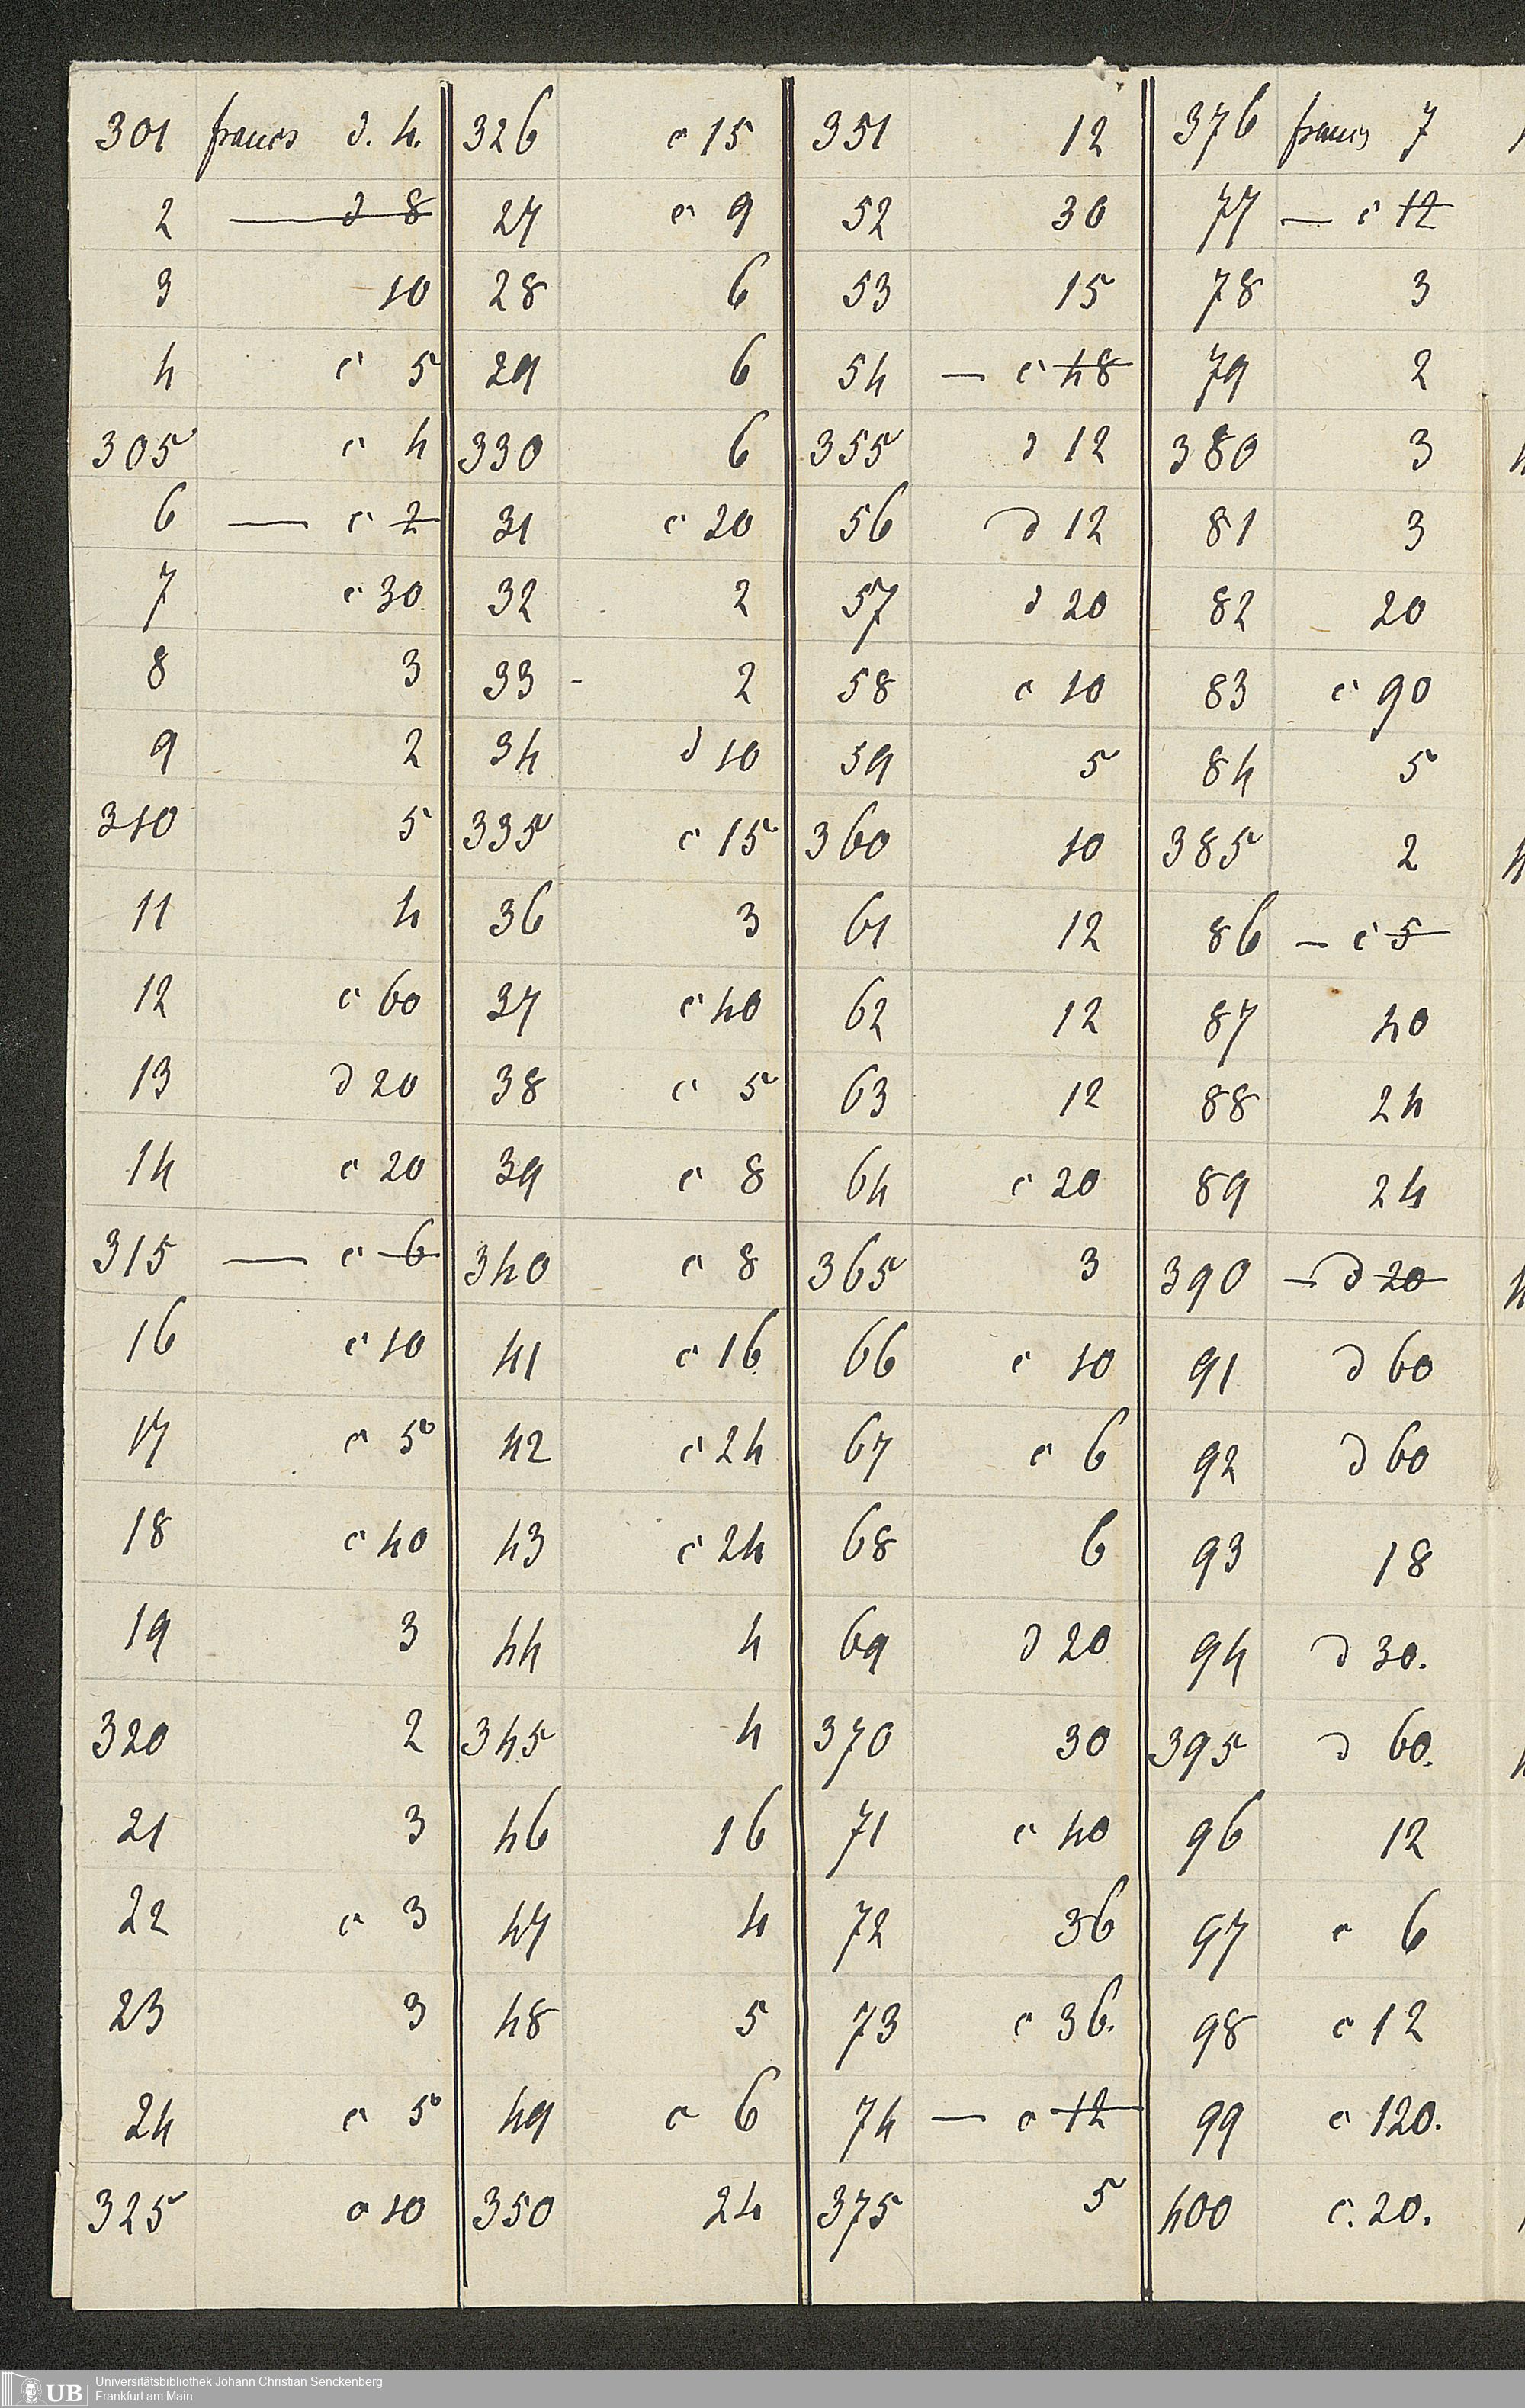 301 francs d. 4. 326 c 15 351 12 376 francs 7
2 — d 8 27 c 9 52 30 77 — c 12
3 10 28 6 53 15 78 3
4 c 5 29 6 54 — c 48 79 2
305 c 4 330 6 355 d 12 380 3
6 — c 2 31 c 20 56 d 12 81 3
7 c 30. 32 2 57 d 20 82 20
8 3 33 - 2 58 c 10 83 c 90
9 2 34 d 10 59 5 84 5
310 5 335 c 15 360 10 385 2
11 4 36 3 61 12 86 — c 5
12 c 60 37 c 40 62 12 87 40
13 d 20 38 c 5 63 12 88 24
14 c 20 39 c 8 64 c 20 89 24
315 — c 6 340 c 8 365 3 390 — d 20
16 c 10 41 c 16 66 c 10 91 d 60
17 c 5 42 c 24 67 c 6 92 d 60
18 c 40 43 c 24 68 6 93 18
19 3 44 4 69 d 20 94 d 30.
320 2 345 4 370 30 395 d 60.
21 3 46 16 71 c 40 96 12
22 c 3 47 4 72 36 97 c 6
23 3 48 5 73 c 36. 98 c 12
24 c 5 49 c 6 74 — c 12 99 c 120.
325 c 10 350 24 375 5 400 c. 20.
UB Universitätsbibliothek Johann Christian Senckenberg
Frankfurt am Main